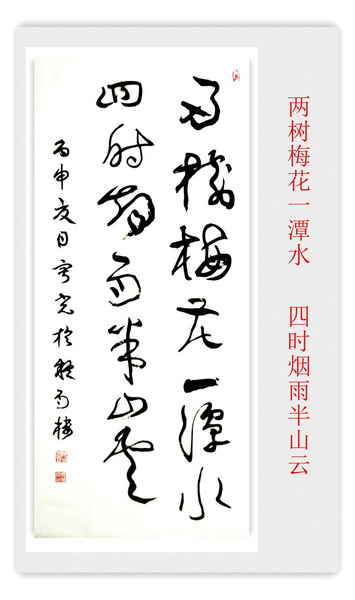 两树梅花一潭水 四时烟雨半山云
两樹梅花一潭水
四时烟雨半山云
丙申夏日於聽雨楼